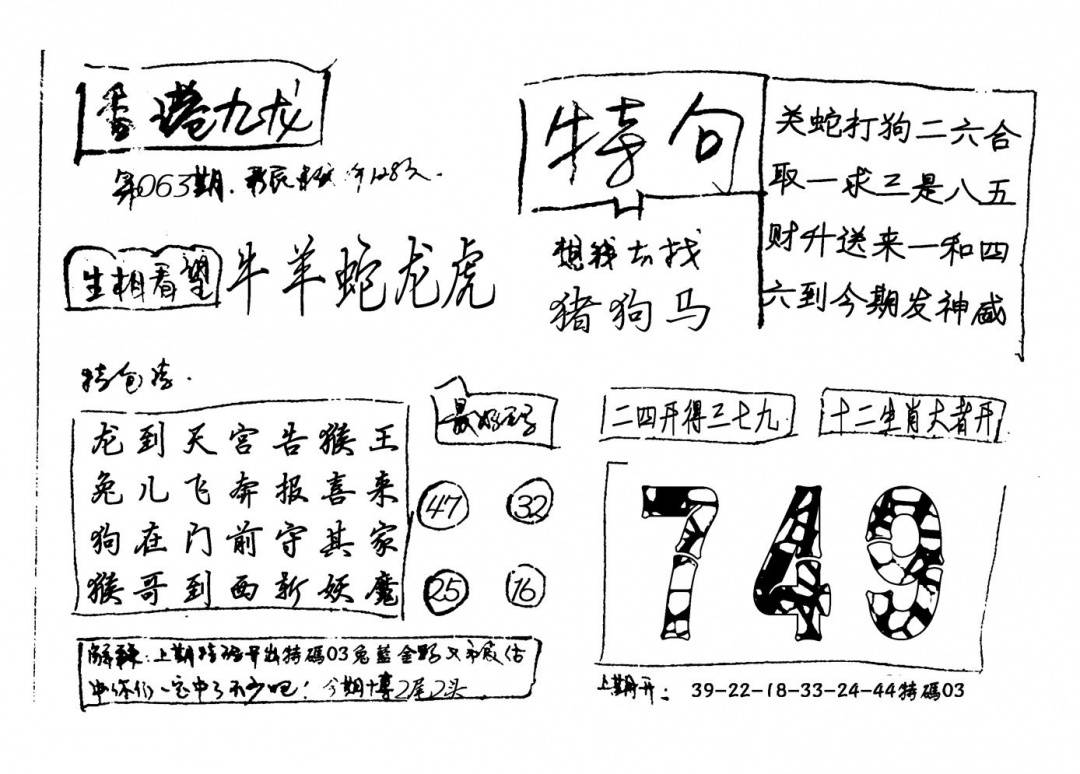 香港九龙
第063期
生相看望 牛羊蛇龙虎
特句
想钱去找
猪狗马
关蛇打狗二六合
取一求三是八五
财升送来一和四
六到今期发神威
龙到天宫告猴王
兔儿飞奔报喜来
狗在门前守其家
猴哥到西斩妖魔
47 32
25 16
二四开得三七九
十二生肖大者开
749
解释：上期特码开出特碼03兔蓝金野又
中你们一定中了不少吧！今期博2尾2头
上期开：39-22-18-33-24-44特碼03